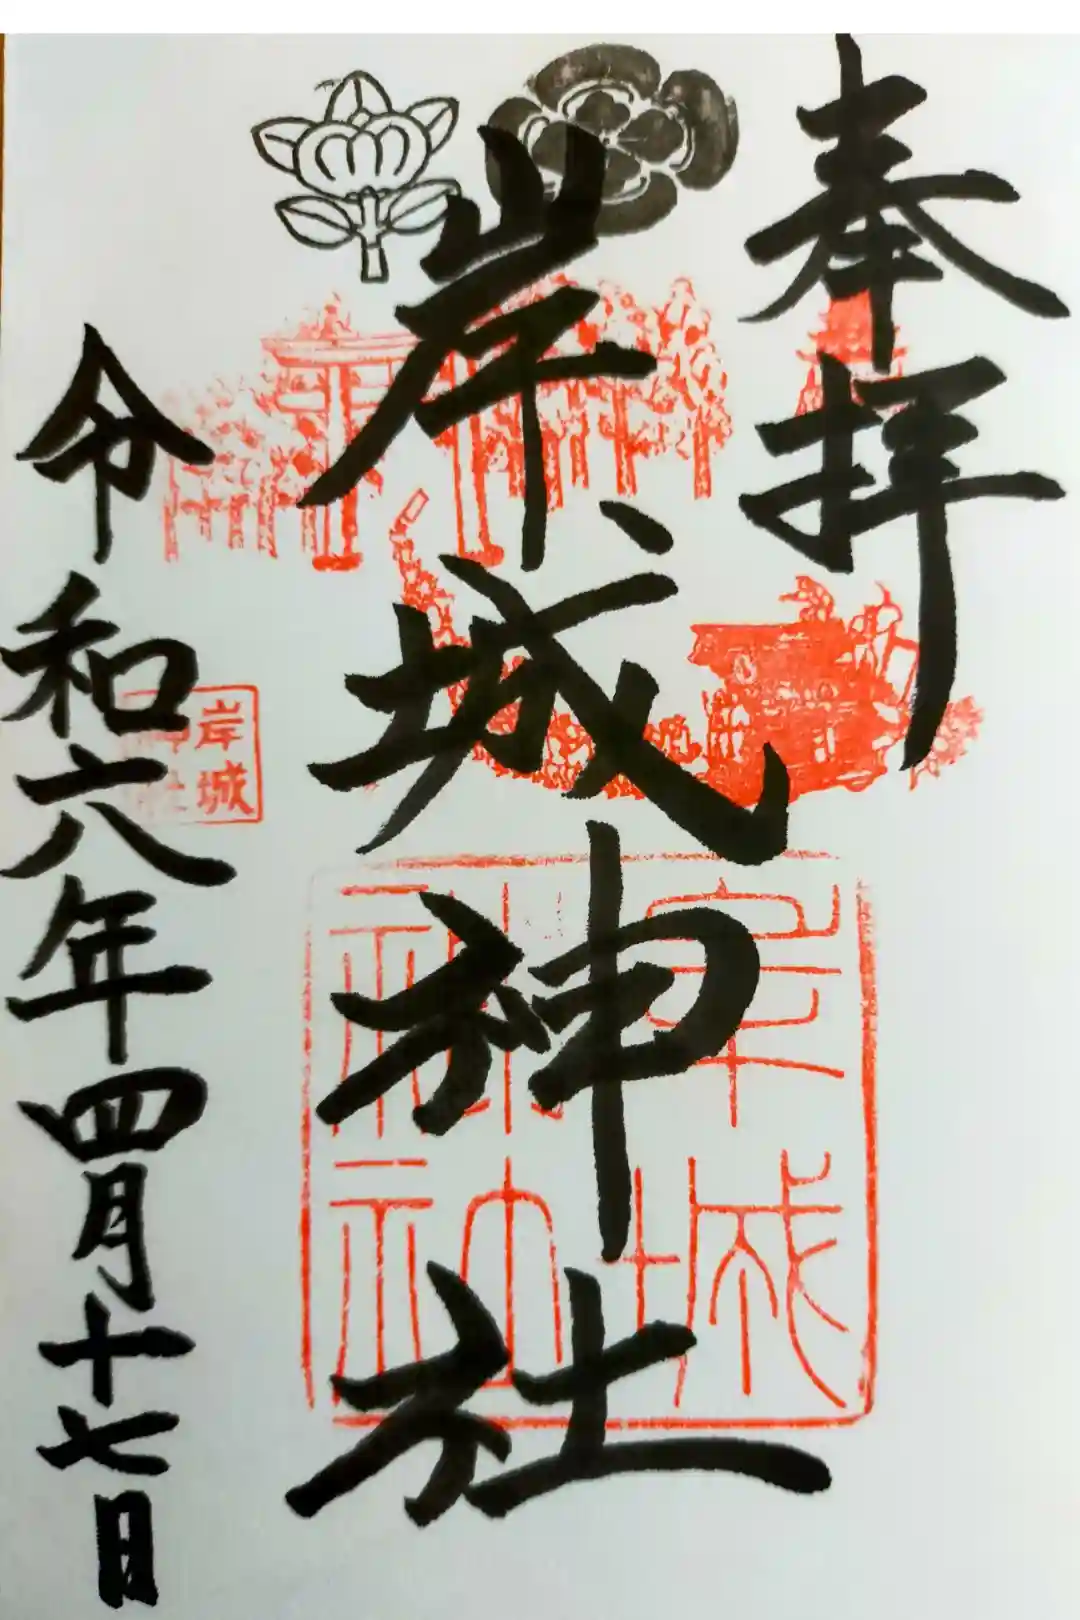 奉拝
岸城神社
令和六年四月十七日
岸城
神社
岸城
神社